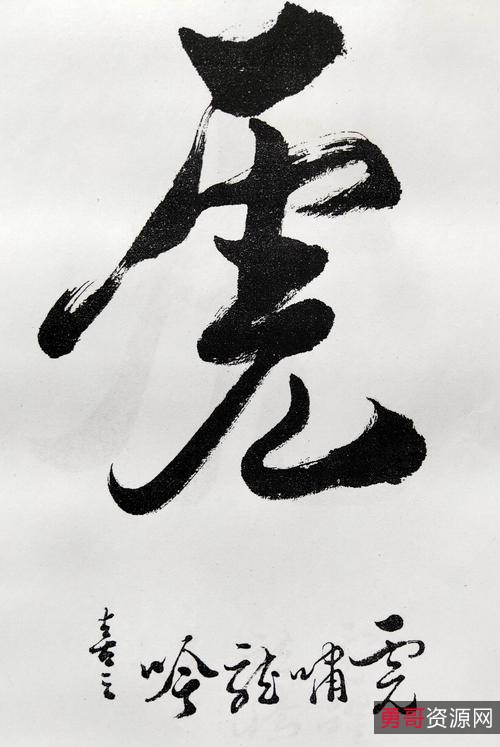 虎
虎啸龙吟
喜之
勇哥资源网